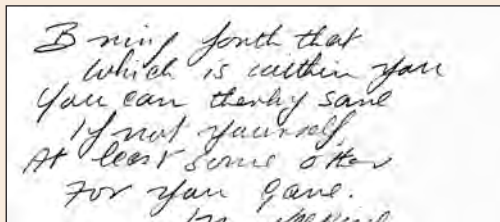 Bring forth that
which is within you
You can therby save
If not yourself,
At least some other
For you gave.